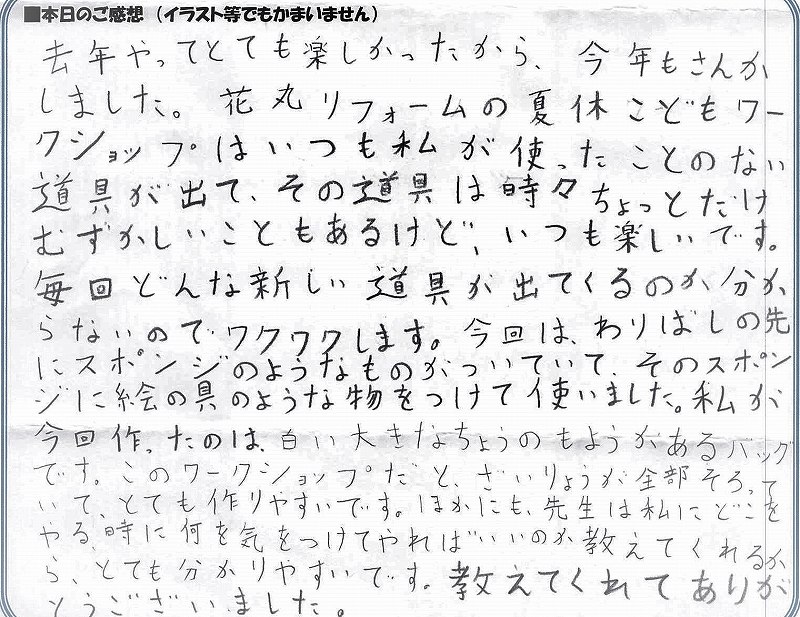 ■本日のご感想（イラスト等でもかまいません）
去年やってとても楽しかったから、今年もさんか
しました。花丸リフォームの夏休こどもワー
クショップはいつも私が使ったことのない
道具が出て、その道具は時々ちょっとだけ
むずかしいこともあるけど、いつも楽しいです。
毎回どんな新しい道具が出てくるのか分か
らないのでワクワクします。今回は、わりばしの先
にスポンジのようなものがついていて、そのスポン
ジに絵の具のような物をつけて使いました。私が
今回作ったのは、白い大きなちょうのもようがあるバッグ
です。このワークショップだと、ざいりょうが全部そろって
いて、とても作りやすいです。ほかにも、先生は私にどこを
やる時に何を気をつけてやればいいのか教えてくれるか
ら、とても分かりやすいです。教えてくれてありが
とうございました。